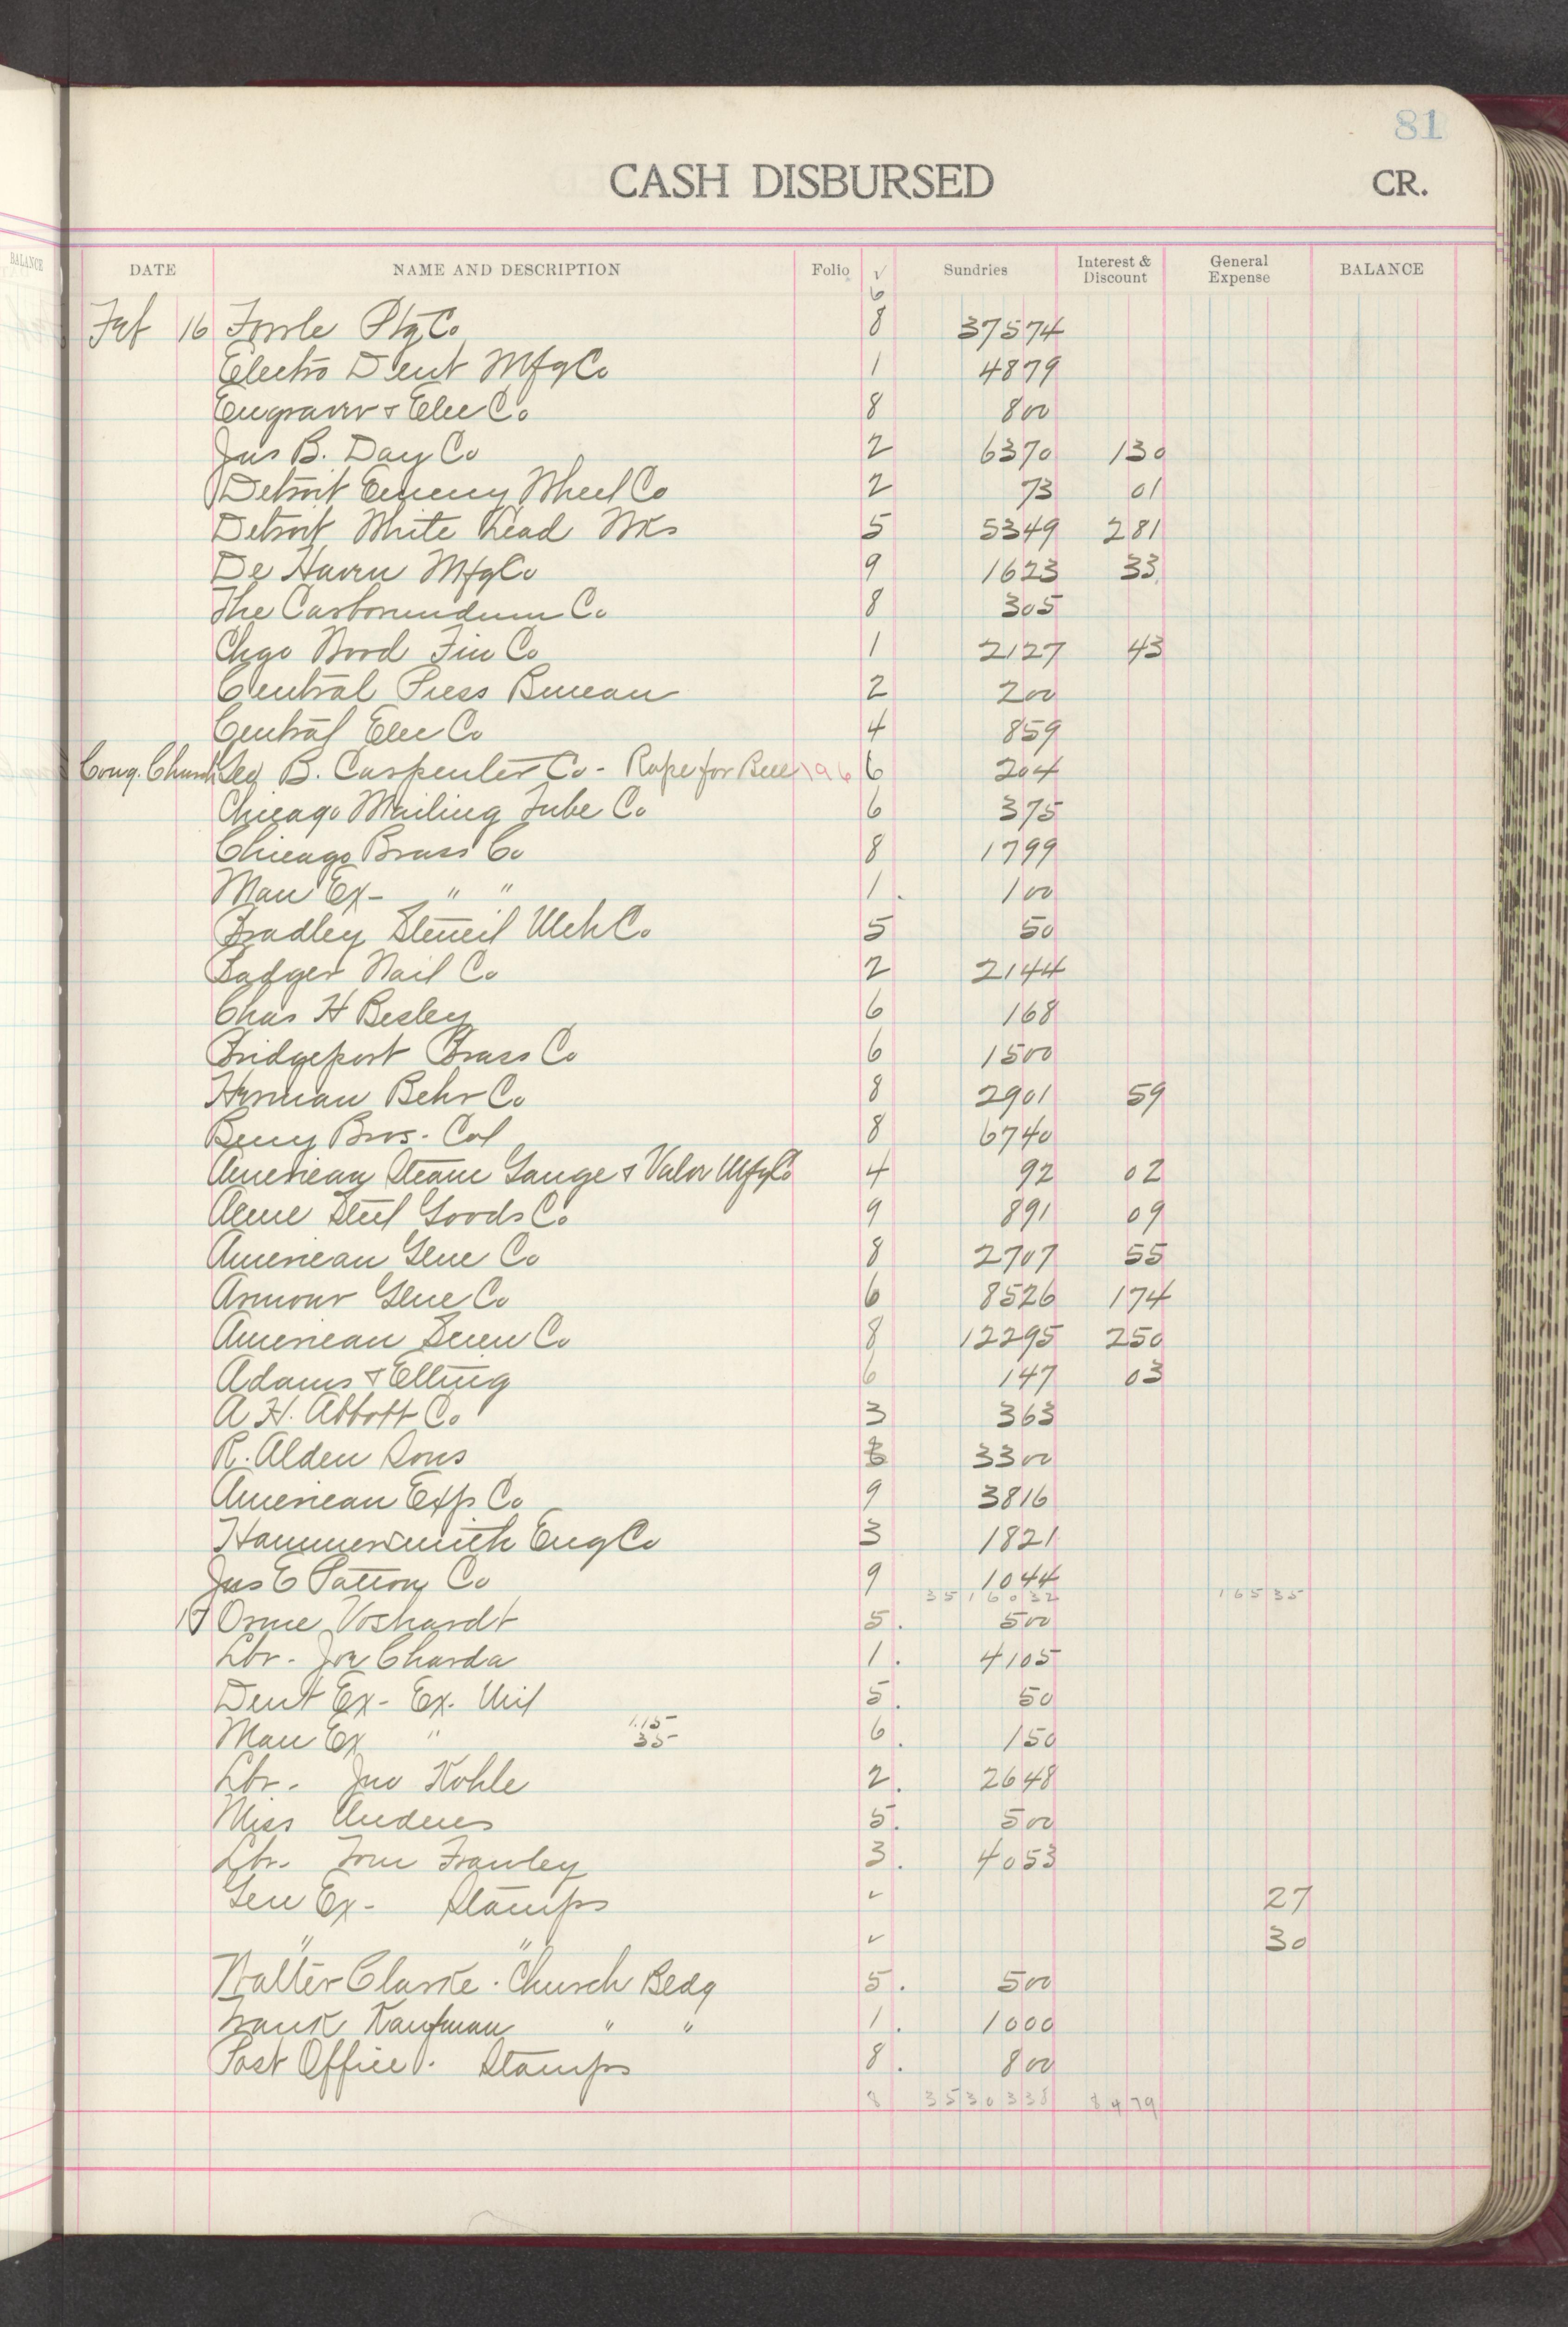 81
CASH DISBURSED CR.
BALANCE
DATE NAME AND DESCRIPTION Folio √ Sundries Interest & Discount General Expense BALANCE
6
Feb 16 Fowle Ptg Co 8 375 74
Electro Dent Mfg Co 1 48 79
Engraver & Elec Co 8 8 00
Jas B. Day Co 2 63 70 1 30
Detroit Emery Wheel Co 2 73 01
Detroit White Lead Wks 5 53 49 2 81
De Haven Mfg Co 9 16 23 33
The Carborundum Co 8 3 05
Chgo Wood Fin Co 1 21 27 43
Central Press Bureau 2 2 00
Central Elec Co 4 8 59
Cong. Church Geo B. Carpenter Co - Rope for Bell 196 6 2 04
Chicago Mailing Tube Co 6 3 75
Chicago Brass Co 8 17 99
Man Ex - " " 1 . 1 00
Bradley Stencil Mch Co 5 50
Badger Nail Co 2 21 44
Chas H Besley 6 1 68
Bridgeport Brass Co 6 15 00
Herman Behr Co 8 29 01 59
Berry Bros. Col 8 67 40
American Steam Gauge & Valve Mfg Co 4 92 02
Acme Steel Goods Co 9 8 91 09
American Glue Co 8 27 07 55
Armour Glue Co 6 85 26 1 74
American Screw Co 8 122 95 2 50
Adams & Elting 6 1 47 03
A. H. Abbott Co 3 3 63
R. Alden Sons 33 00
American Exp Co 9 38 16
Hammersmith Eng Co 3 18 21
Jas E Patton Co 9 10 44
35160 32 165 35
17 Orme Voshardt 5 . 5 00
Lbr. Joe Charda 1 . 41 05
Dent Ex - Ex. Mil 5 . 50
Man Ex " 1.15 35 6 . 1 50
Lbr. Jno Kohle 2 . 26 48
Miss 5 . 5 00
Lbr. Tom Frawley 3 . 40 53
Gen Ex - Stamps ✓ 27
" " ✓ 30
Walter Clarke . Church Bldg 5 . 5 00
Frank Kaufman " " 1 . 10 00
Post Office . Stamps 8 . 8 00
8 35303 38 84 79